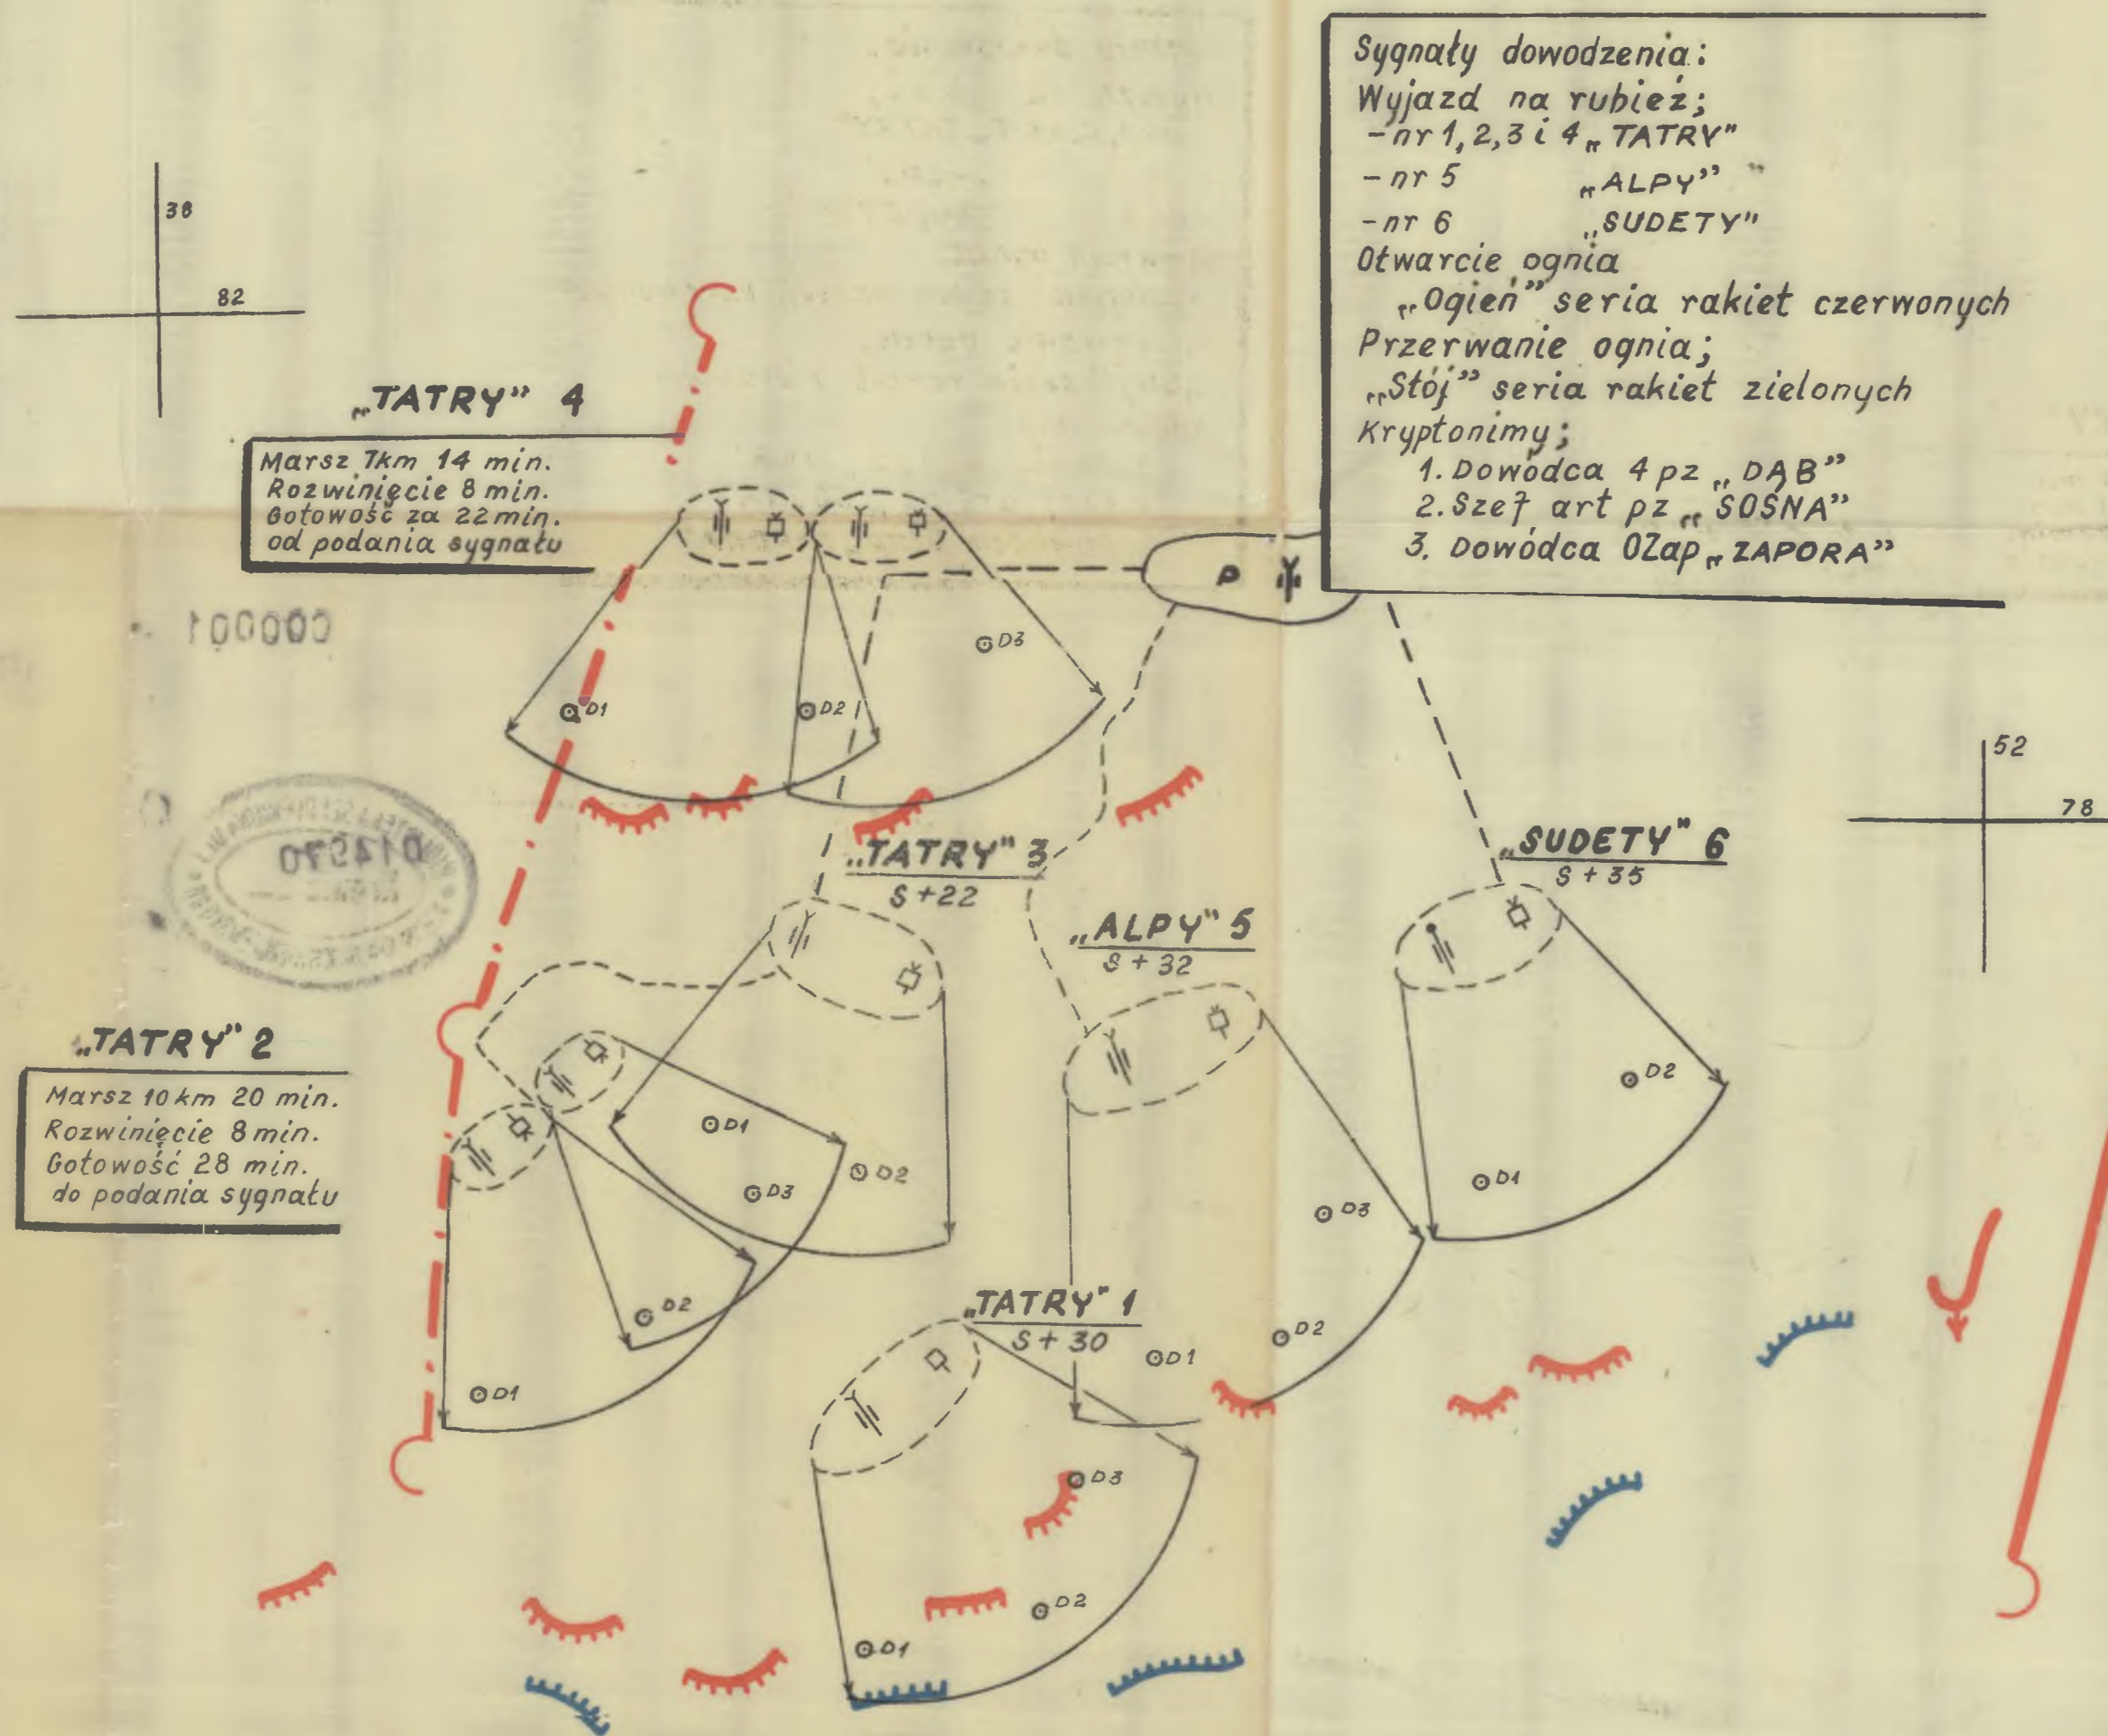 Sygnały dowodzenia:
Wyjazd na rubież;
- nr 1, 2, 3 i 4 „TATRY"
- nr 5 „ALPY"
- nr 6 „SUDETY"
Otwarcie ognia
„Ogień" seria rakiet czerwonych
Przerwanie ognia;
„Stój" seria rakiet zielonych
Kryptonimy;
1. Dowódca 4 pz „DĄB"
2. Szef art pz „SOSNA"
3. Dowódca OZap „ZAPORA"
38
82
„TATRY" 4
Marsz 7km 14 min.
Rozwinięcie 8 min.
Gotowość za 22 min.
od podania sygnału
P
000001
D1
D2
D3
52
78
014970
„TATRY" 3
S + 22
„SUDETY" 6
S + 35
„ALPY" 5
S + 32
„TATRY" 2
Marsz 10 km 20 min.
Rozwinięcie 8 min.
Gotowość 28 min.
do podania sygnału
D1
D2
D3
D2
D1
D2
D1
D3
D2
D1
„TATRY" 1
S + 30
D3
D2
D1